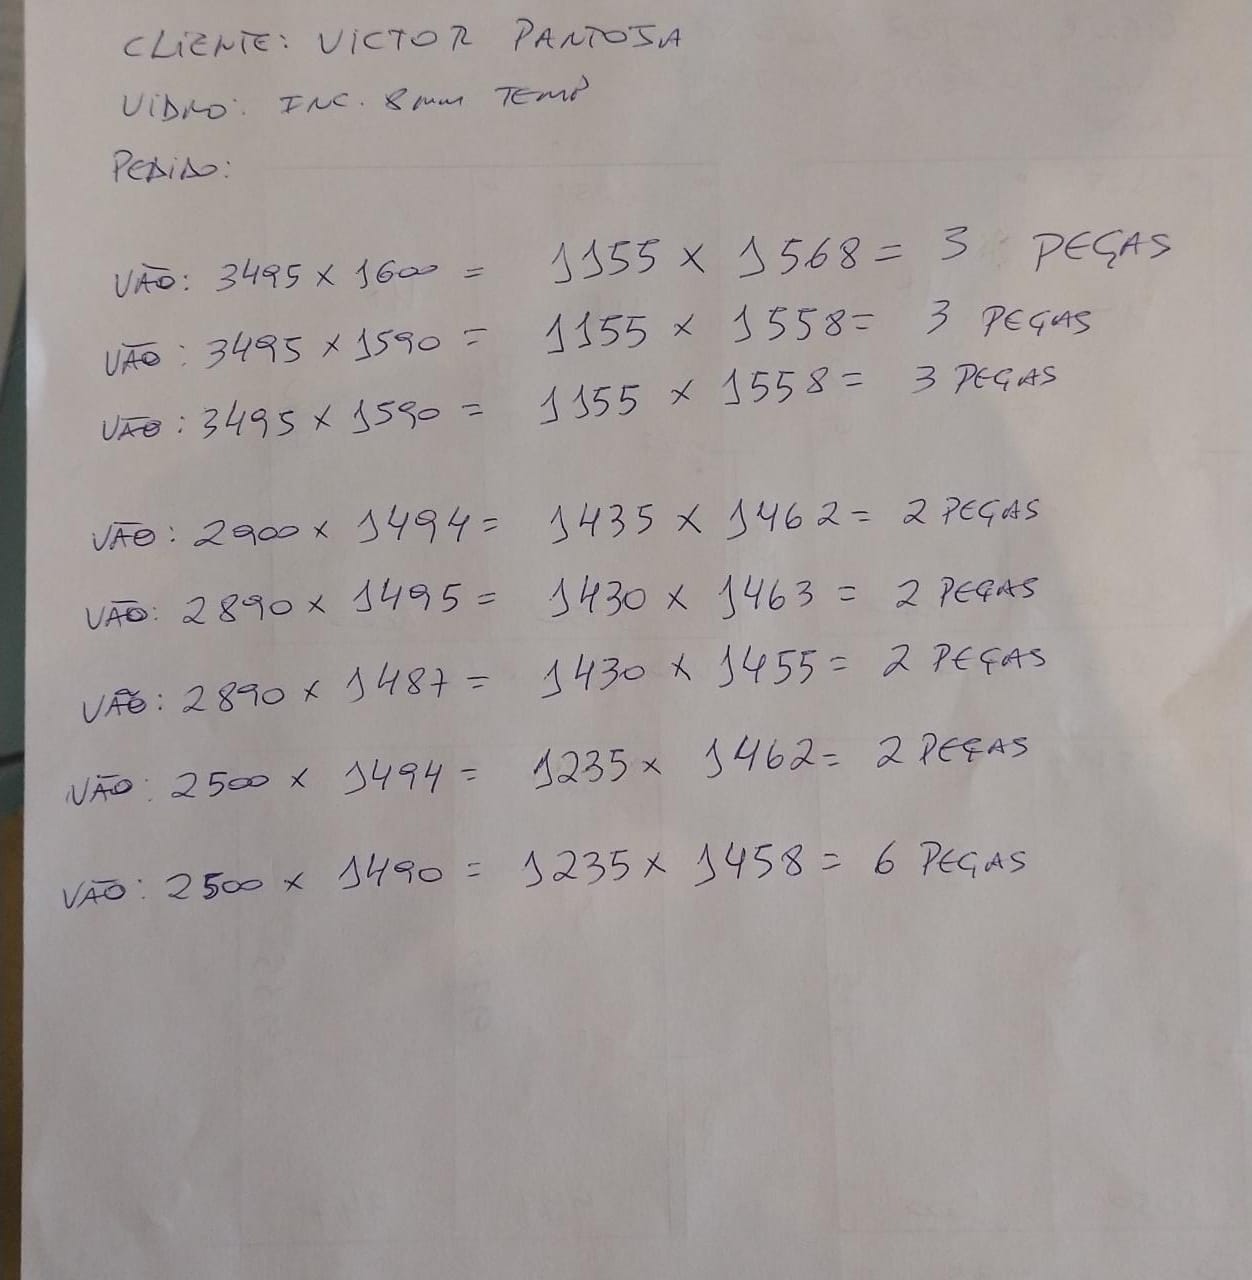 CLIENTE: VICTOR PANTOJA
VIDRO: INC. 8mm TEMP
PEDIDO:
VÃO: 3495 x 1600 = 1155 x 1568 = 3 PEÇAS
VÃO: 3495 x 1590 = 1155 x 1558 = 3 PEÇAS
VÃO: 3495 x 1590 = 1155 x 1558 = 3 PEÇAS
VÃO: 2900 x 1494 = 1435 x 1462 = 2 PEÇAS
VÃO: 2890 x 1495 = 1430 x 1463 = 2 PEÇAS
VÃO: 2890 x 1487 = 1430 x 1455 = 2 PEÇAS
VÃO: 2500 x 1494 = 1235 x 1462 = 2 PEÇAS
VÃO: 2500 x 1490 = 1235 x 1458 = 6 PEÇAS